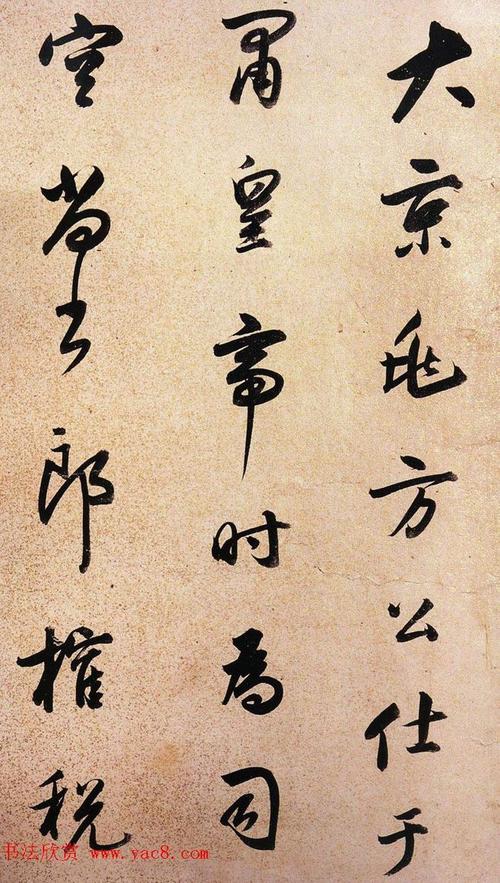 大京兆方公仕于
肅皇帝时為司
空尚书郎榷税
书法欣赏 www.yac8.com